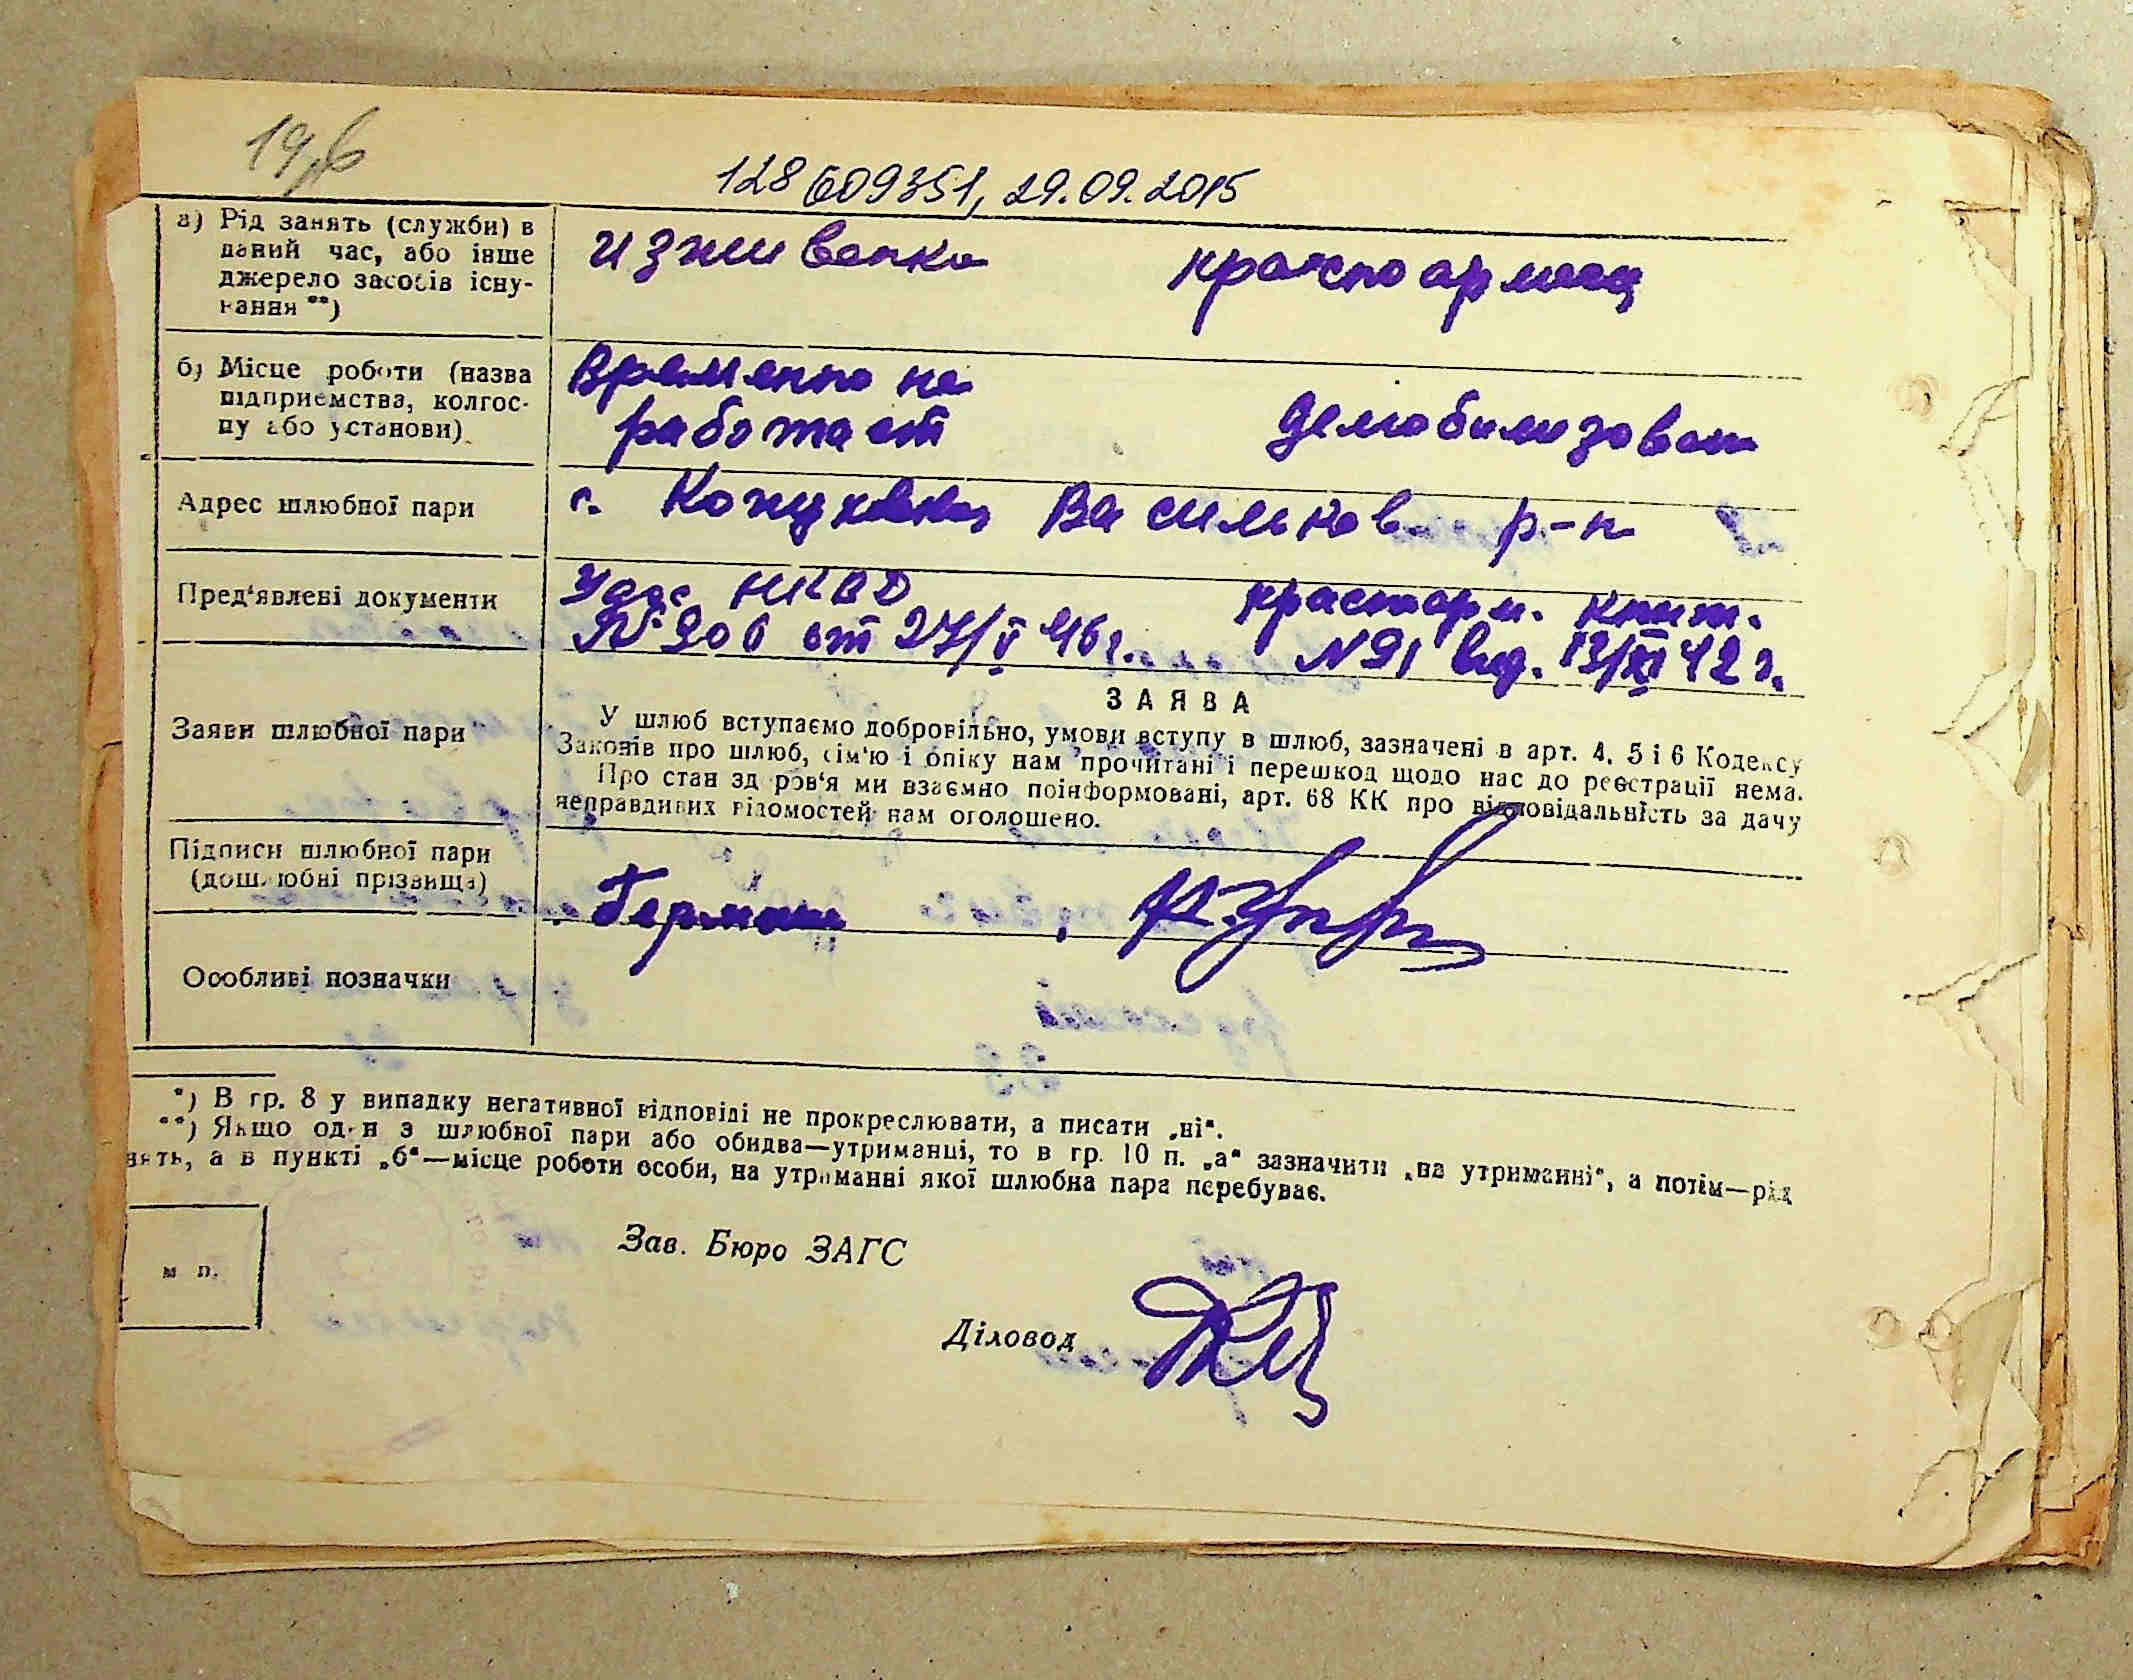 128 609351, 29.09.2015
а) Рід занять (служби) в
даний час, або інше
джерело засобів існу-
вання **)
иждивенка красноармеец
б) Місце роботи (назва
підприємства, колгос-
пу або установи)
Временно не
работает демобилизован
Адрес шлюбної пари
Васильков. р-н
Пред'явлені документи
Удос НКВД красноарм. книж.
№ 206 от 27/V 46 г. № 91 выд. 13/XI 42 г.
Заяви шлюбної пари
ЗАЯВА
У шлюб вступаємо добровільно, умови вступу в шлюб, зазначені в арт. 4, 5 і 6 Кодексу
Законів про шлюб, сім'ю і опіку нам прочитані і перешкод щодо нас до реєстрації нема.
Про стан здоров'я ми взаємно поінформовані, арт. 68 КК про відповідальність за дачу
неправдивих відомостей нам оголошено.
Підписи шлюбної пари
(дошлюбні прізвища)
Герман
Особливі позначки
*) В гр. 8 у випадку негативної відповіді не прокреслювати, а писати „ні“.
**) Якщо один з шлюбної пари або обидва—утриманці, то в гр. 10 п. „а“ зазначити „на утриманні“, а потім—рід
нять, а в пункті „б“—місце роботи особи, на утриманні якої шлюбна пара перебуває.
м п.
Зав. Бюро ЗАГС
Діловод